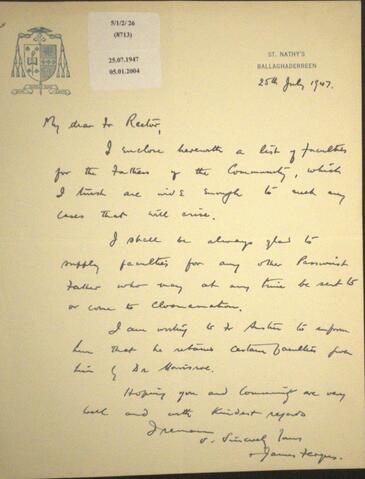 5/1/2/26
(8713)
25.07.1947
05.01.2004
ST. NATHY'S
BALLAGHADERREEN
25th July 1947.
My dear Fr Rector,
I enclose herewith a list of faculties
for the Fathers of the Community, which
I think are wide enough to meet any
cases that will arise.
I shall be always glad to
supply faculties for any other Passionist
Father who may at any time be sent to
or come to Cloonamahon.
I am writing to Fr Austin to inform
him that he retains certain faculties given
him by Dr Morrisroe.
Hoping you and Community are very
well and with kindest regards
I remain
Sincerely Yours
+ James Fergus.